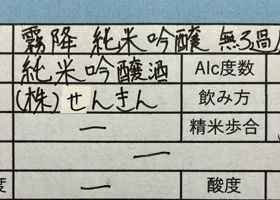 霧降 純米吟醸 無ろ過
純米吟醸酒 Alc度数
(株)せんきん 飲み方
ー 精米歩合
ー
度 ー 酸度